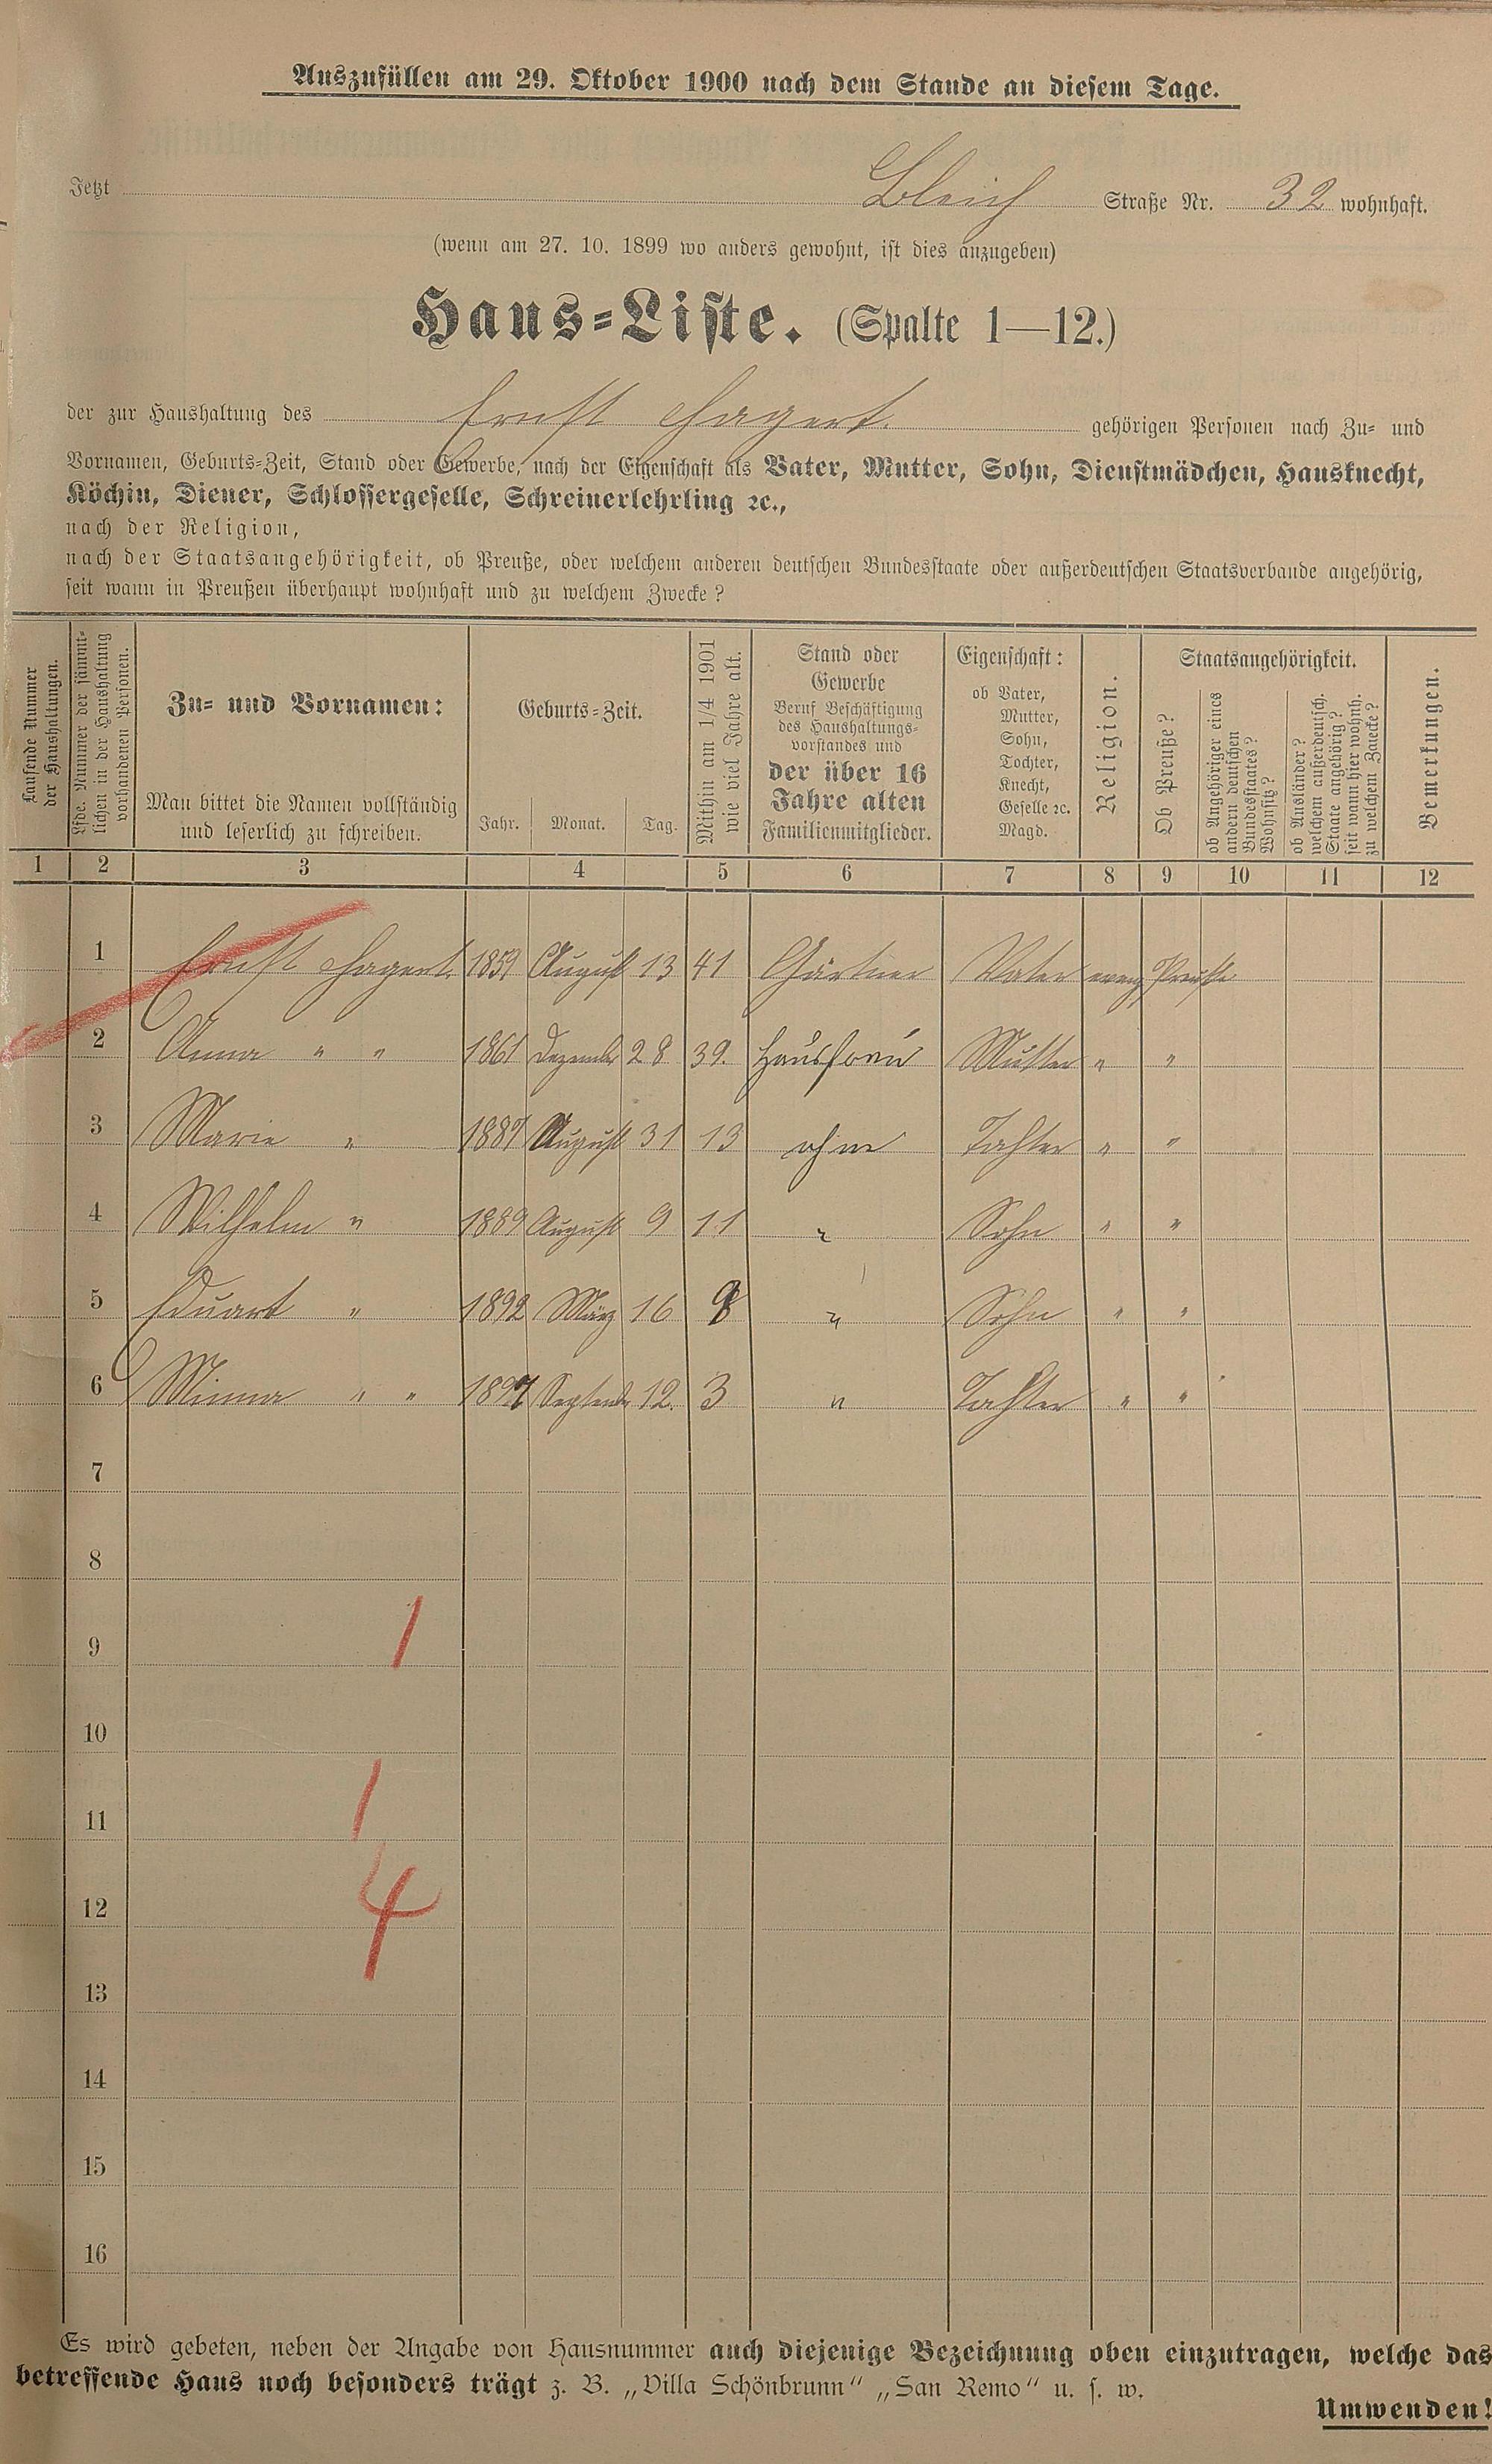 Auszufüllen am 29. Oktober 1900 nach dem Stande an diesem Tage.
Jetzt Bleich Straße Nr. 32 wohnhaft.
(wenn am 27. 10. 1899 wo anders gewohnt, ist dies anzugeben)
Haus=Liste. (Spalte 1—12.)
der zur Haushaltung des Ernst Hagert. gehörigen Personen nach Zu= und
Vornamen, Geburts=Zeit, Stand oder Gewerbe, nach der Eigenschaft als Vater, Mutter, Sohn, Dienstmädchen, Hausknecht,
Köchin, Diener, Schlossergeselle, Schreinerlehrling ꝛc.,
nach der Religion,
nach der Staatsangehörigkeit, ob Preuße, oder welchem anderen deutschen Bundesstaate oder außerdeutschen Staatsverbande angehörig,
seit wann in Preußen überhaupt wohnhaft und zu welchem Zwecke?
Laufende Nummer
der Haushaltungen.
Lfde. Nummer der sämmt=
lichen in der Haushaltung
vorhandenen Personen.
Zu= und Vornamen:
Man bittet die Namen vollständig
und leserlich zu schreiben.
Geburts=Zeit.
Jahr. Monat. Tag.
Mithin am 1/4 1901
wie viel Jahre alt.
Stand oder
Gewerbe
Beruf Beschäftigung
des Haushaltungs=
vorstandes und
der über 16
Jahre alten
Familienmitglieder.
Eigenschaft:
ob Vater,
Mutter,
Sohn,
Tochter,
Knecht,
Geselle ꝛc.
Magd.
Religion.
Staatsangehörigkeit.
Ob Preuße?
ob Angehöriger eines
andern deutschen
Bundesstaates?
Wohnsitz?
ob Ausländer?
welchem außerdeutsch.
Staate angehörig?
seit wann hier wohnh.
zu welchem Zwecke?
Bemerkungen.
1 2 3 4 5 6 7 8 9 10 11 12
1 Ernst Hagert. 1859 August 13 41 Gärtner Vater evang Preuße
2 Anna " " 1861 Dezember 28 39. Hausfrau Mutter " "
3 Marie " 1887 August 31 13 ohne Tahter " "
4 Wilhelm " 1889 August 9 11 " Sohn " "
5 Eduart " 1892 März 16 9 " Sohn " "
6 Minna " " 1897 September 12. 3 " Tahter " "
7
8
9 1
10
11 1
12 4
13
14
15
16
Es wird gebeten, neben der Angabe von Hausnummer auch diejenige Bezeichnung oben einzutragen, welche das
betreffende Haus noch besonders trägt z. B. „Villa Schönbrunn“ „San Remo“ u. s. w.
Umwenden!